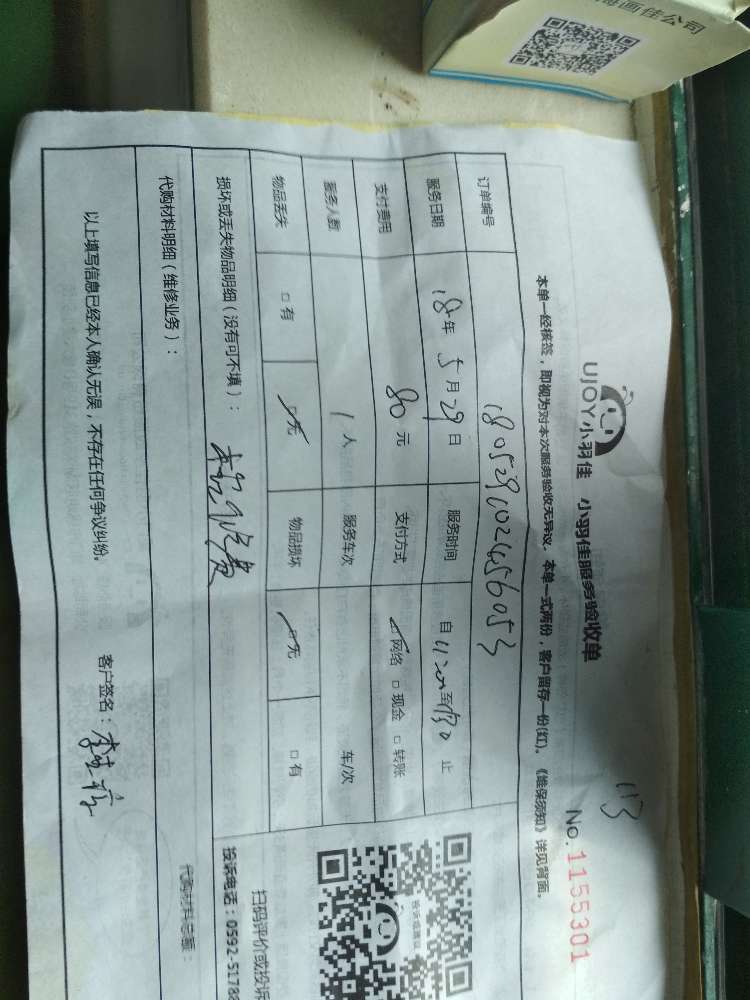 画佳公司
113
UJOY小羽佳 小羽佳服务验收单
No. 1155301
本单一经核签，即视为对本次服务验收无异议。本单一式两份，客户留存一份(红)。《维保须知》详见背面。
订单编号 180529102456053
服务日期 18年 5月 29日 服务时间 自 至 止
支付费用 80 元 支付方式 网络 □ 现金 □ 转账
服务人数 1 人 服务车次 车/次
物品丢失 □ 有 无 物品损坏 无 □ 有
损坏或丢失物品明细（没有可不填）：
代购材料明细（维修业务）：
代购材料总额：
以上填写信息已经本人确认无误，不存在任何争议纠纷。
客户签名：
扫码评价或投诉
投诉电话：0592-5178